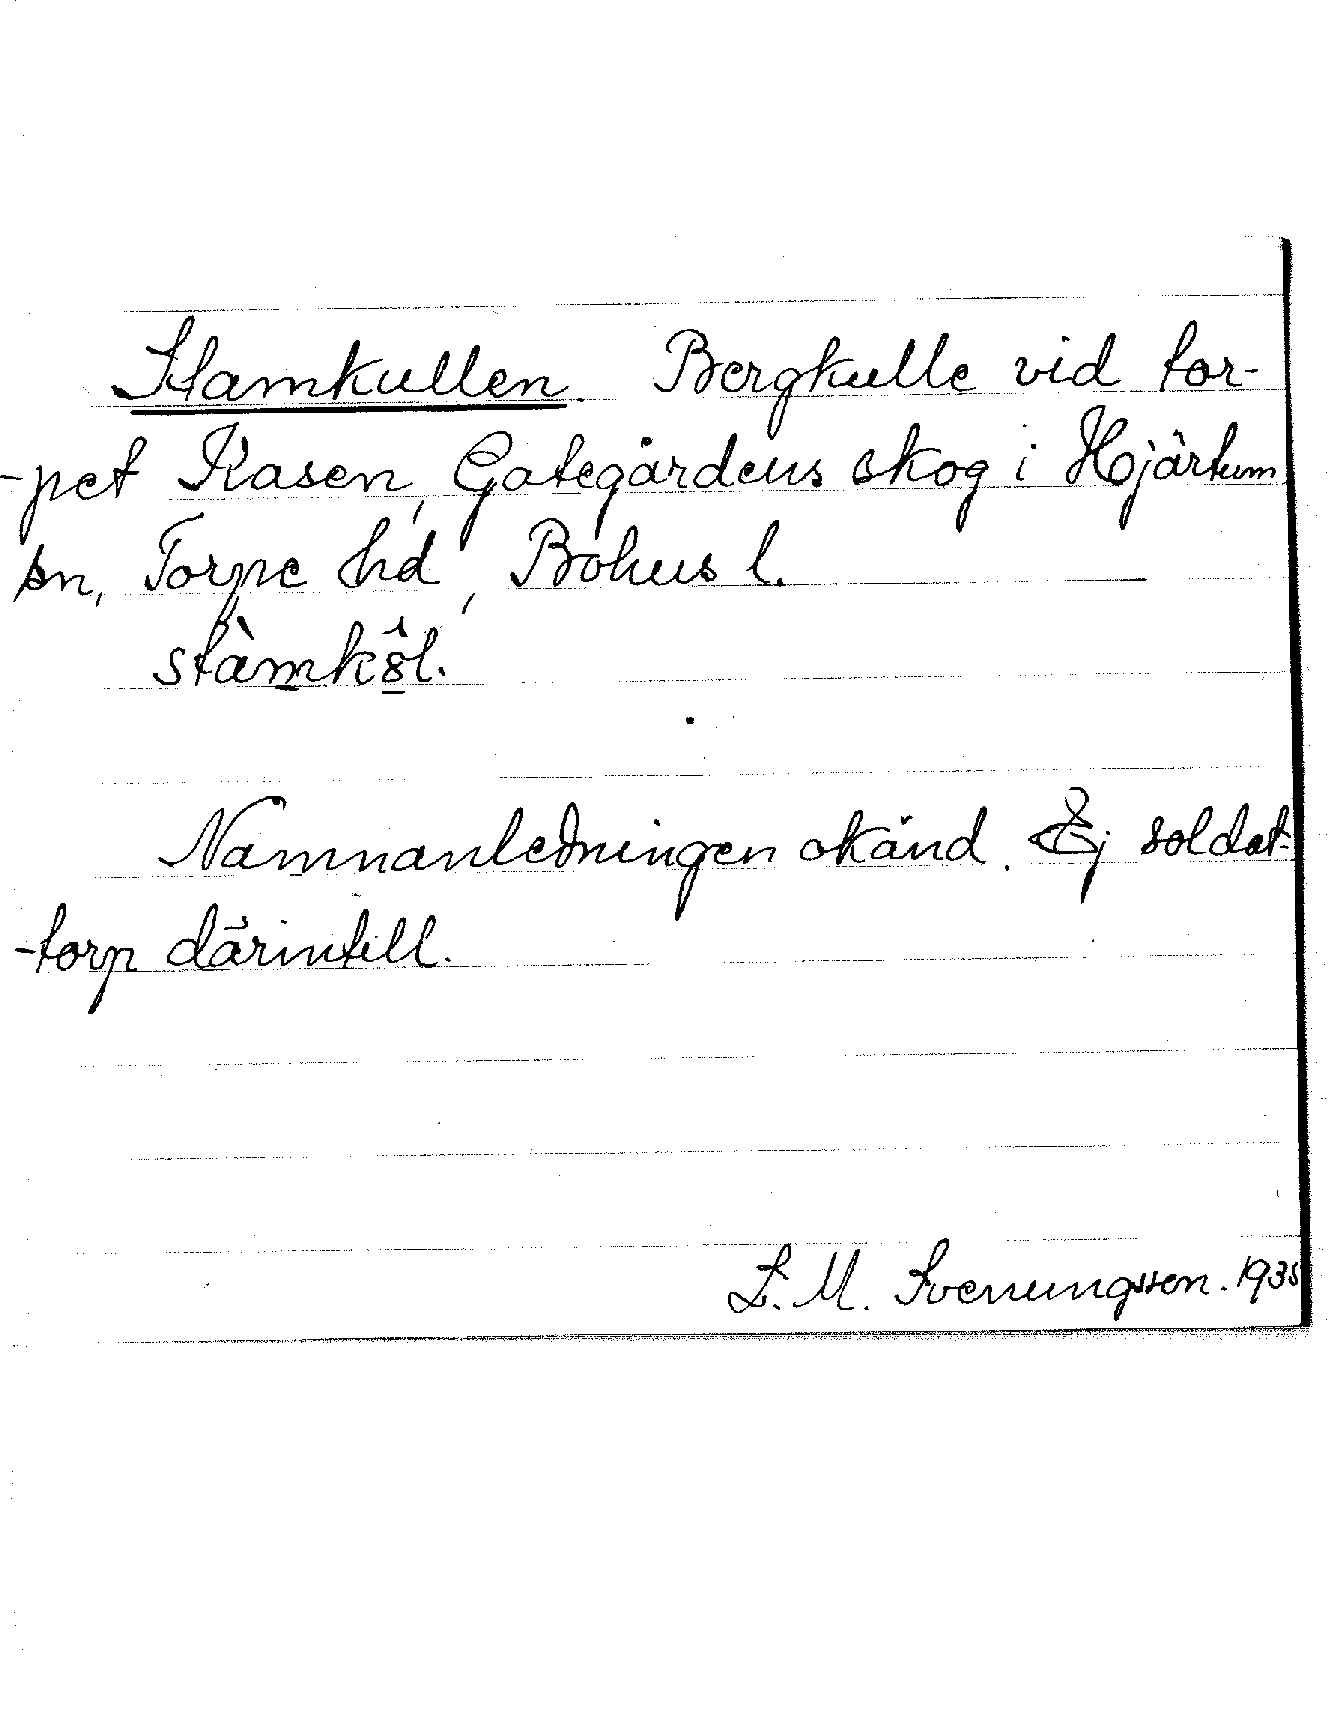 Stamkullen. Bergkulle vid tor-
-pet Kasen, Gategårdens skog i Hjärtum
sn, Torpe hd, Bohus l.
stàmk8̂l.
Namnanledningen okänd. Ej soldat-
-torp därintill.
L. M. Svenungsson. 1935